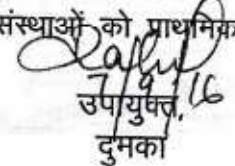 संस्थाओं को प्राथमिक
7/9/16
उपायुक्त,
दुमका